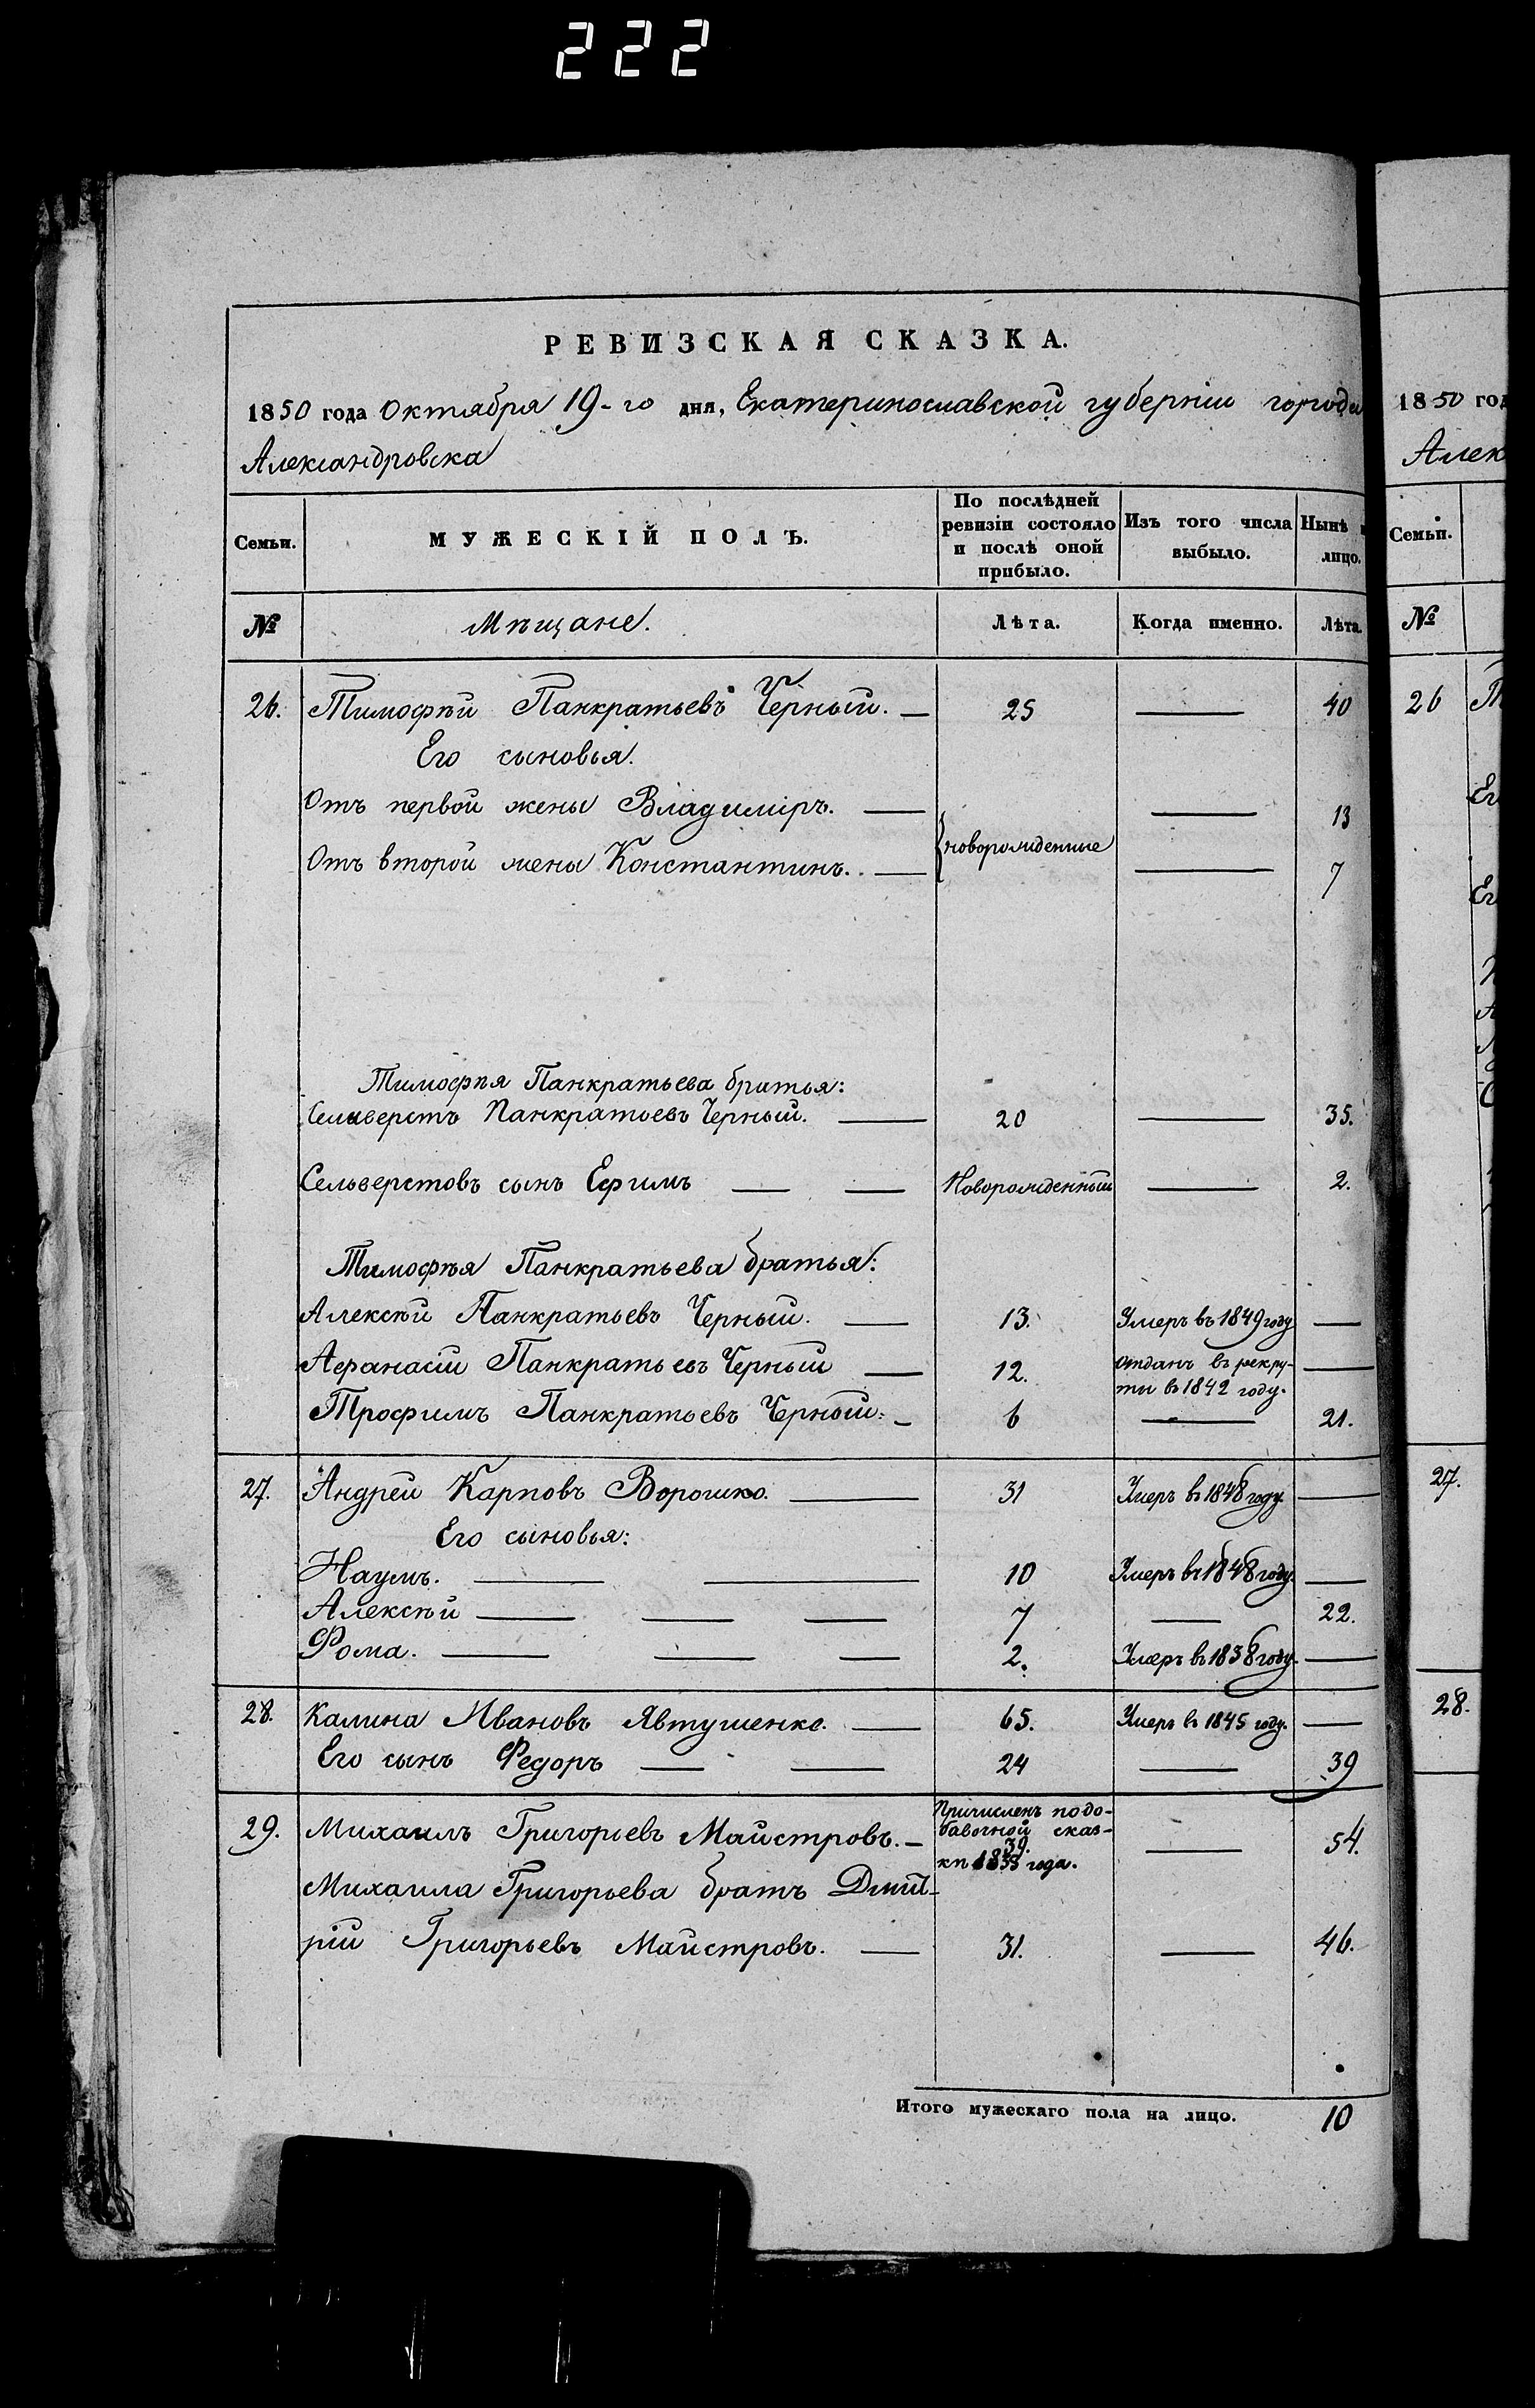 222
РЕВИЗСКАЯ СКАЗКА.
1850 года Октября 19-го дня, Екатеринославской губерніи города
Александровска
Семьи. МУЖЕСКІЙ ПОЛЪ. По послѣдней ревизіи состояло и послѣ оной прибыло. Изъ того числа выбыло. Нынѣ лицо.
№ Мѣщане. Лѣта. Когда именно. Лѣта.
26. Тимофѣй Панкратьевъ Черный. — 25 — 40
Его сыновья.
Отъ первой жены Владиміръ. — — 13
новорожденные
Отъ второй жены Константинъ. — — 7
Тимофѣя Панкратьева братья:
Селиверстъ Панкратьевъ Черный. — 20 — 35.
Сельверстовъ сынъ Ефимъ — — Новорожденный — 2.
Тимофѣя Панкратьева братья:
Алексѣй Панкратьевъ Черный. — 13. Умеръ въ 1849 году —
Афанасій Панкратьевъ Черный — 12. Отданъ въ рекру-
ты въ 1842 году. —
Трофимъ Панкратьевъ Черный: — 6 — 21.
27. Андрей Карповъ Ворошко. — 31 Умеръ въ 1848 году. —
Его сыновья:
Наумъ. — — 10 Умеръ въ 1848 году. —
Алексѣй — — — 7 — 22.
Фома. — — — 2. Умеръ въ 1838 году. —
28. Калина Ивановъ Явтушенко. — 65. Умеръ въ 1845 году. —
Его сынъ Федоръ — — 24 — 39
29. Михаилъ Григорьевъ Майстровъ. — Причисленъ подо-
бавочной сказ-
39.
кѣ 1835 года. — 54.
Михаила Григорьева братъ Дмит-
рій Григорьевъ Майстровъ. — 31. — 46.
Итого мужескаго пола на лицо. 10
1850 год
Алек
Семьи.
№
26
Ег
Ег
27.
28.